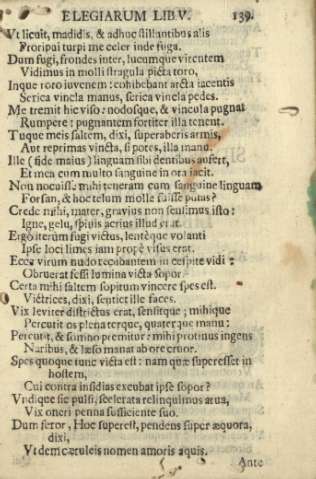 ELEGIARUM LIB. V. 139.
Vt licuit, madidis, & adhuc stillantibus alis
Proripui turpi me celer inde fuga.
Dum fugi, frondes inter, lucumque virentem
Vidimus in molli stragula picta toro,
Inque toro iuvenem: cohibebant arcta iacentis
Serica vincla manus, serica vincla pedes.
Me tremit hic viso: nodosque, & vincula pugnat
Rumpere: pugnantem fortiter illa tenent.
Tuque meis saltem, dixi, superaberis armis,
Aut reprimas vincta, si potes, illa manu.
Ille (fide maius) linguam sibi dentibus aufert,
Et mea cum multo sanguine in ora iacit.
Non nocuisse mihi teneram cum sanguine linguam
Forsan, & hoc telum molle fuisse putas?
Crede mihi, mater, gravius non sensimus isto:
Igne, gelu, spinis acrius illud erat.
Ergo iterum fugi victus, lenteque volanti
Ipse loci limes iam propè visus erat.
Ecce virum nudo recubantem in cespite vidi:
Obruerat fessa lumina victa sopor.
Certa mihi saltem sopitum vincere spes est.
Victrices, dixi, sentiet ille faces.
Vix leviter districtus erat, sensitque; mihique
Percutit os plena terque, quaterque manu:
Percutit, & somno premitur: mihi protinus ingens
Naribus, & læso manat ab ore cruor.
Spes quoque tunc victa est: nam quæ superesset in
hostem,
Cui contra insidias excubat ipse sopor?
Vndique sic pulsi, scelerata relinquimus arua,
Vix oneri penna sufficiente suo.
Dum feror, Hoc superest, pendens super æquora,
dixi,
Vt dem cæruleis nomen amoris aquis.
Ante